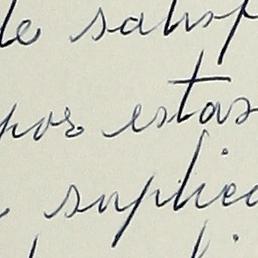 de satisf
por estas
suplica